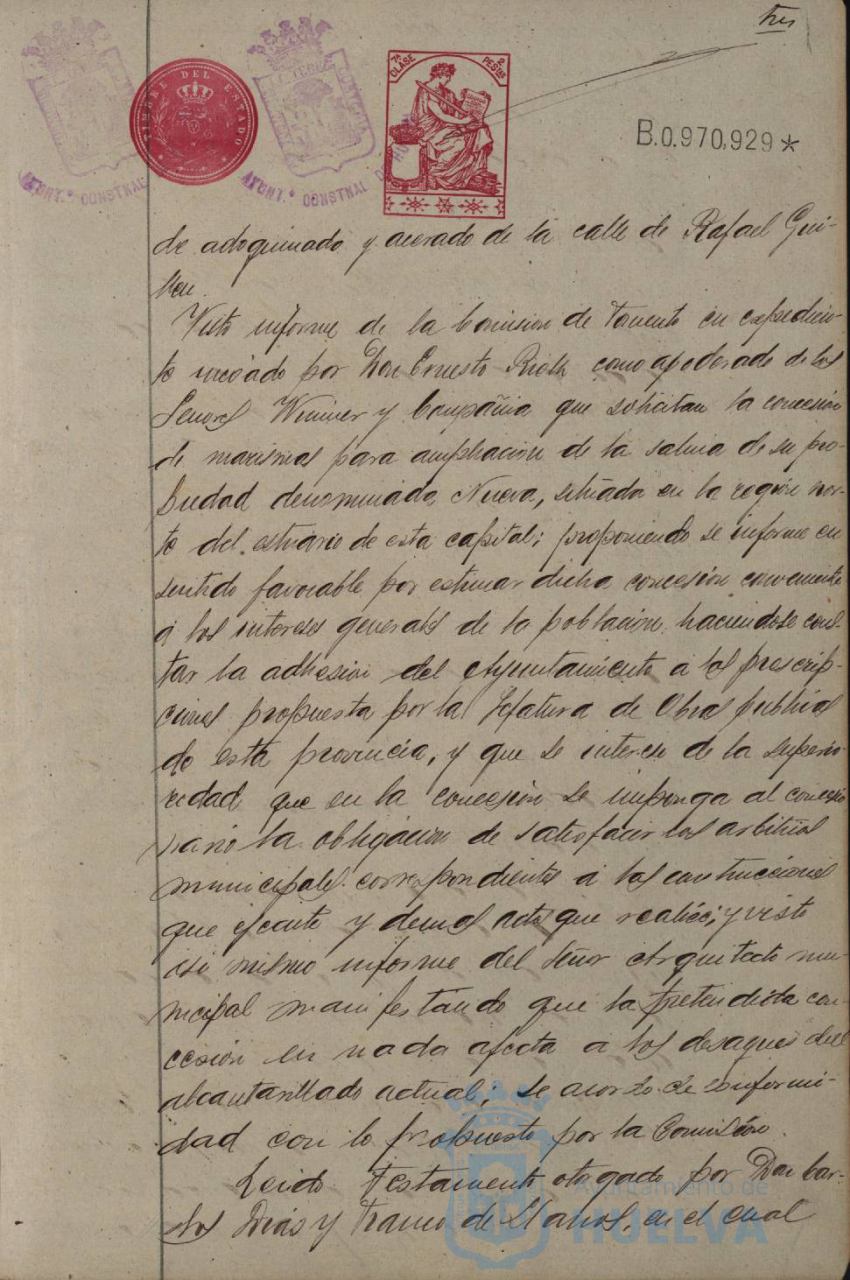 tres
TIMBRE DEL ESTADO
7ª CLASE 2 PESTAS
B.0.970,929*
AYUNT.º CONSTNAL
AYUNT.º CONSTNAL DE HUELVA
de adoquinado y acerado de la calle de Rafael Gui-
llen.
Visto informe de la Comision de Fomento en expedien-
te incoado por Don Ernesto como apoderado de los
Señores y Compañia que solicitan la concesión
de marismas para ampliación de la salina de su pro-
piedad denominada Nueva, situada en la región nor-
te del estuario de esta capital; proponiendo se informe en
sentido favorable por estimar dicha concesión conveniente
á los intereses generales de la población, haciendose cons-
tar la adhesion del Ayuntamiento á las prescrip-
ciones propuesta por la Jefatura de Obras publicas
de esta provincia, y que se interese de la superio-
ridad que en la concesión se imponga al concesio-
nario la obligación de satisfacer los arbitrios
municipales correspondientes á las construcciones
que ejecute y demas actos que realice; y visto
asi mismo informe del Señor Arquitecto mu-
nicipal manifestando que la pretendida con-
cesión en nada afecta á los desagues del
alcantarillado actual; se acordo de conformi-
dad con lo propuesto por la Comisión.
Leido testamento otogado por Don Car-
los Dias y Franco de Llanos, en el cual
Ayuntamiento de
HUELVA